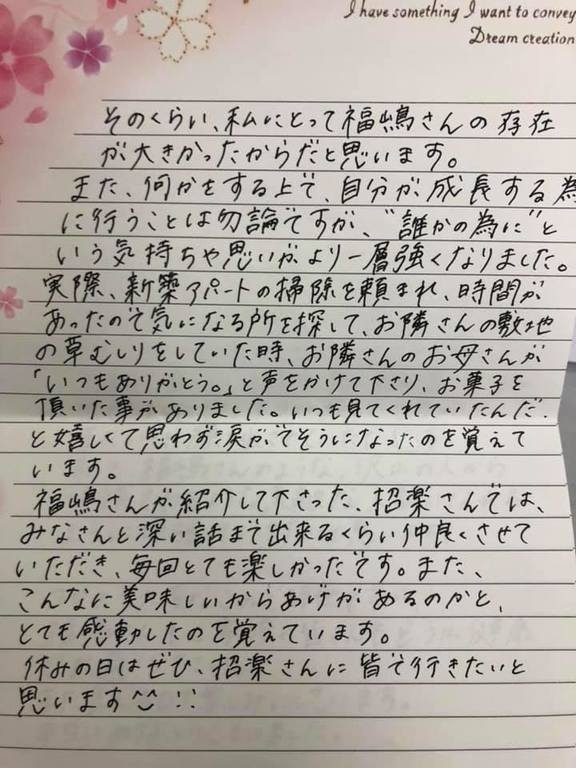 I have something I want to convey
Dream creation
そのくらい、私にとって福嶋さんの存在
が大きかったからだと思います。
また、何かをする上で、自分が成長する為
に行うことは勿論ですが、"誰かの為に"と
いう気持ちや思いがより一層強くなりました。
実際、新築アパートの掃除を頼まれ、時間が
あったので気になる所を探して、お隣さんの敷地
の草むしりをしていた時、お隣さんのお母さんが
「いつもありがとう。」と声をかけて下さり、お菓子を
頂いた事がありました。いつも見てくれていたんだ、
と嬉しくて思わず涙がでそうになったのを覚えて
います。
福嶋さんが紹介して下さった、招楽さんでは、
みなさんと深い話まで出来るくらい仲良くさせて
いただき、毎回とても楽しかったです。また、
こんなに美味しいからあげがあるのかと、
とても感動したのを覚えています。
休みの日はぜひ、招楽さんに皆で行きたいと
思います^^ !!